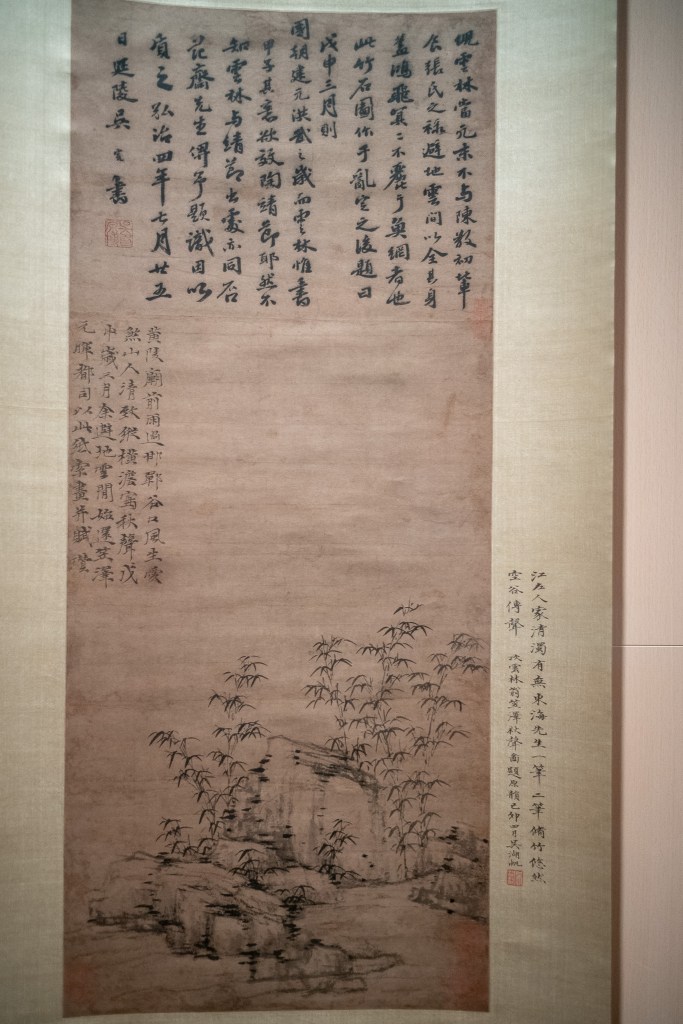 倪雲林當元末不与陳敷初輩
食張氏之祿避地雲間以全其身
蓋鴻飛冥〻不麗于網者也
此竹石圖作于亂定之後題曰
戊申三月則
國朝建元洪武之歲而雲林惟書
甲子其意欲效陶靖節耶然不
知雲林与靖節出處亦同否
齋先生俾予題識因以
質之弘治四年七月廿五
日延陵吳寬書
黃陵廟前雨過邯鄲谷口風生愛
煞山人清致縱橫澹寫秋聲戊
申歲三月余避地雲間始還笠澤
元暉都司以此紙索畫并賦瓚
江左人家清濁有無東海先生一筆二筆脩竹悠然
空谷傳聲 次雲林翁笠澤秋聲圖題原韻己卯四月吳湖帆